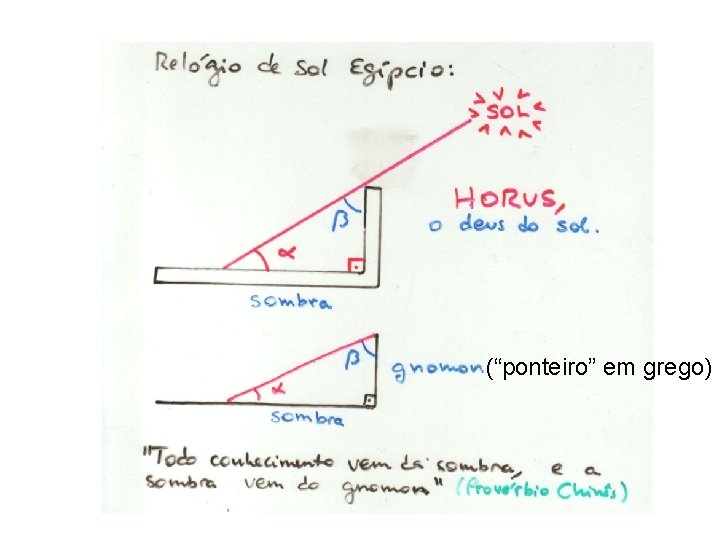 Relógio de Sol Egípcio:
SOL
HORUS,
o deus do sol.
β
α
sombra
β
gnomon (“ponteiro” em grego)
α
sombra
"Todo conhecimento vem da sombra, e a
sombra vem do gnomon" (Provérbio Chinês)